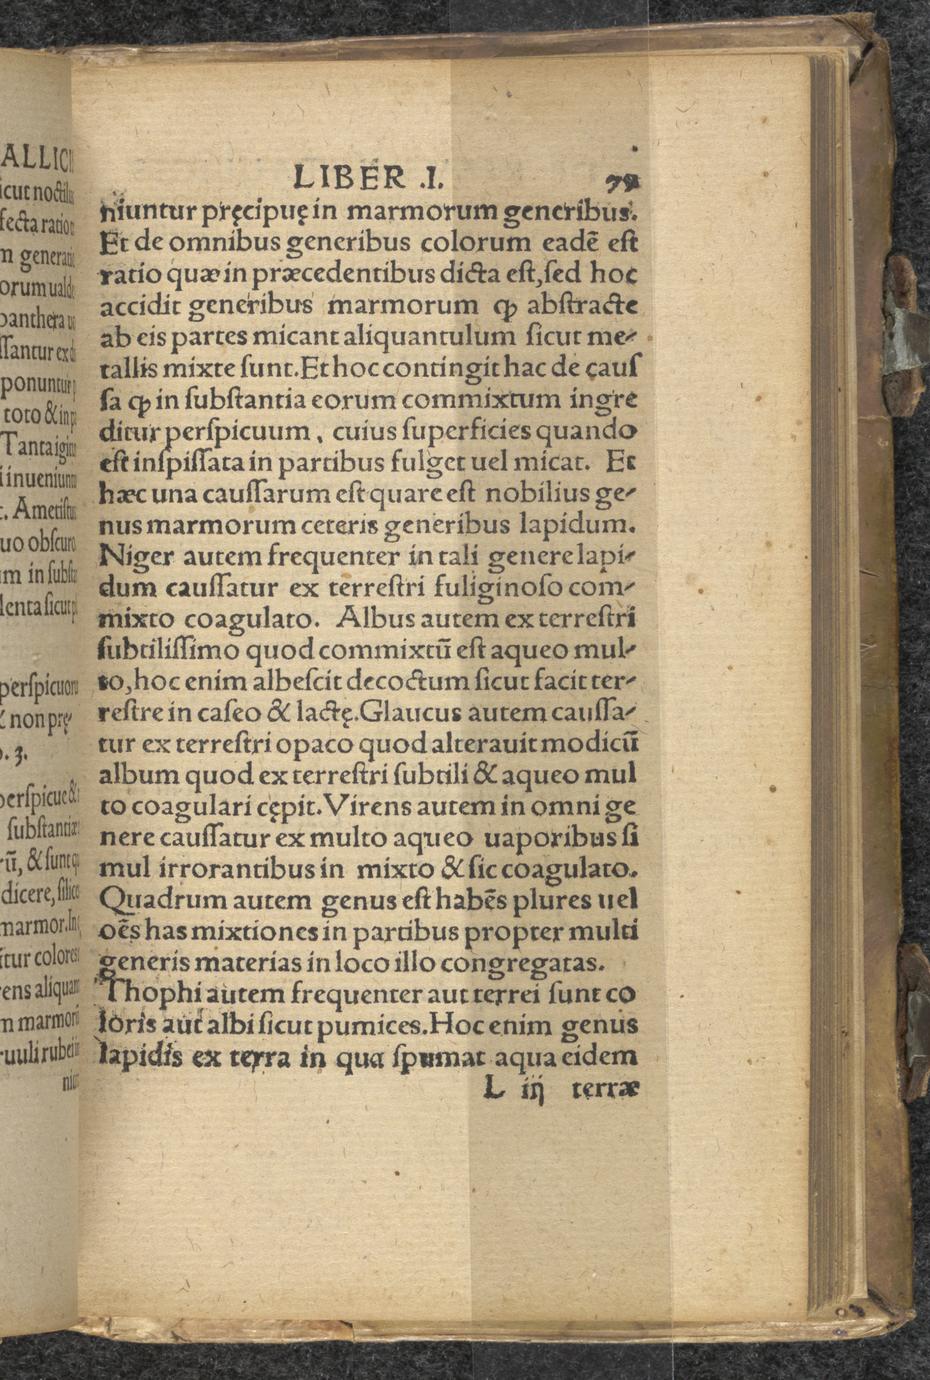 ALLICI
icut noctilu
fecta ration
m generati
orum uald
panthera
ssantur ex
ponuntur
toto & in
Tanta igit
i inueniunt
. Ametist
uo obscuro
m in subst
lenta sicut
perspicuor
& non prę⸗
. 3.
perspicue &
substantiæ
rū, & sunt
dicere, silic
marmor. In
itur colores
ens aliquan
m marmori
ruuli rubei
niun
LIBER .I. 79
niuntur pręcipuę in marmorum generibus.
Et de omnibus generibus colorum eadē est
ratio quæ in præcedentibus dicta est, sed hoc
accidit generibus marmorum ꝙ abstracte
ab eis partes micant aliquantulum sicut me⸗
tallis mixte sunt. Et hoc contingit hac de çauſ
ſa ꝙ in ſubſtantia eorum commixtum ingre
ditur perſpicuum , cuius ſuperficies quando
eſt inſpiſſata in partibus fulget uel micat. Et
hæc una cauſſarum eſt quare eſt nobilius ge⸗
nus marmorum ceteris generibus lapidum.
Niger autem frequenter in tali genere lapi⸗
dum cauſſatur ex terreſtri fuliginoſo com⸗
mixto coagulato. Albus autem ex terreſtri
ſubtiliſſimo quod commixtū eſt aqueo mul⸗
to, hoc enim albeſcit decoctum ſicut facit ter⸗
reſtre in caſeo & lactę. Glaucus autem cauſſa⸗
tur ex terreſtri opaco quod alterauit modicū
album quod ex terreſtri ſubtili & aqueo mul
to coagulari cępit. Virens autem in omni ge
nere cauſſatur ex multo aqueo uaporibus ſi
mul irrorantibus in mixto & ſic coagulato.
Quadrum autem genus eſt habēs plures uel
oēs has mixtiones in partibus propter multi
generis materias in loco illo congregatas.
Thophi autem frequenter aut terrei ſunt co
loris aut albi ſicut pumices. Hoc enim genus
lapidis ex terra in qua ſpumat aqua eidem
L iij terræ